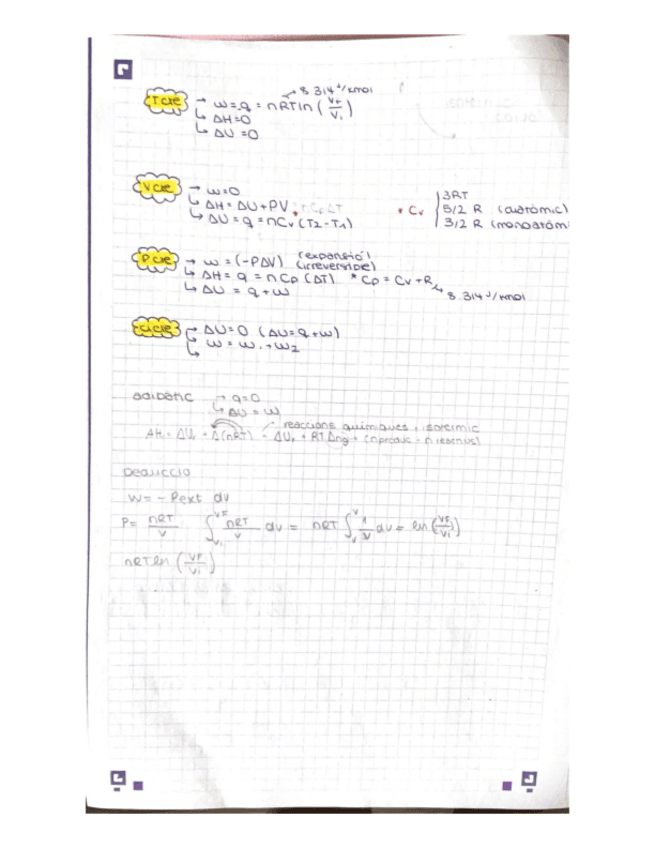 T cte → w=-q = nRTln (VF/Vi) → 8.314 J/Kmol
↳ ΔH=0
↳ ΔU=0
V cte → w=0
↳ ΔH = ΔU+PV, nCpΔT
↳ ΔU = q = nCv (T2-T1)
* Cv { 3RT
5/2 R (diatòmic)
3/2 R (monoatòm
P cte → w = (-PΔV) (expansió) (irreversible)
↳ ΔH = q = nCp (ΔT) * Cp = Cv + R → 8.314 J/Kmol
↳ ΔU = q+w
cicle → ΔU=0 (ΔU=q+w)
↳ w = w1+w2
↳
adibàtic → q=0
↳ ΔU = w
reaccions químiques, isotermic
ΔHr = ΔUr + Δ(nRT) = ΔUr + RTΔng → (nproduc - nreactius)
Deducció
W = - Pext dv
P = nRT/V ∫Vi VF nRT/V dv = nRT ∫V V 1/V dv = ln (VF/Vi)]
nRTln (VF/Vi)